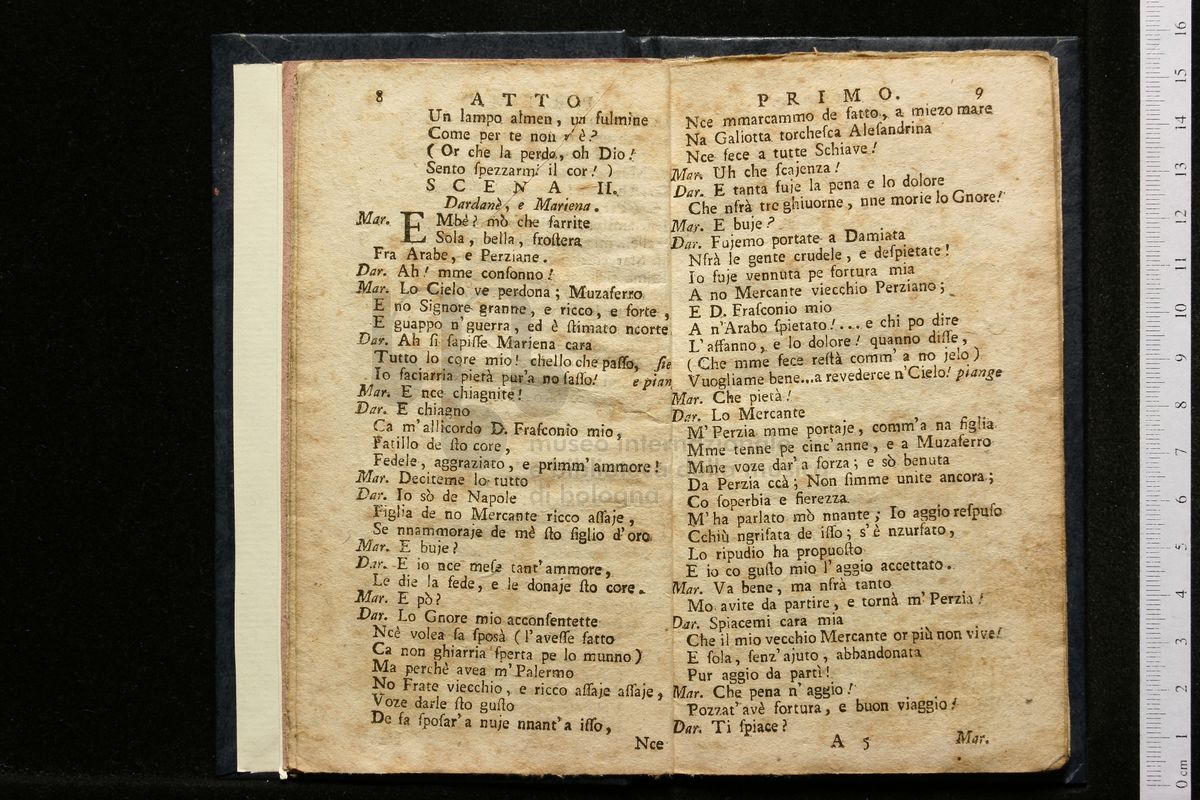 8 ATTO
Un lampo almen, un fulmine
Come per te non v'è?
(Or che la perdo, oh Dio!
Sento ſpezzarmi il cor!)
SCENA II.
Dardanè, e Mariena.
Mar. EMbè? mò che ſarrite
Sola, bella, froſtera
Fra Arabe, e Perziane.
Dar. Ah! mme conſonno!
Mar. Lo Cielo ve perdona; Muzaferro
E no Signore granne, e ricco, e forte,
E guappo n'guerra, ed è ſtimato ncorte
Dar. Ah ſi ſapiſſe Mariena cara
Tutto lo core mio! chello che paſſo, ſie
Io faciarria pietà pur'a no ſaſſo! e pian
Mar. E nce chiagnite!
Dar. E chiagno
Ca m'allicordo D. Fraſconio mio,
Patillo de ſto core,
Fedele, aggraziato, e primm'ammore!
Mar. Deciteme lo tutto
Dar. Io sò de Napole
Figlia de no Mercante ricco aſſaje,
Se nnammoraje de mè ſto figlio d'oro
Mar. E buje?
Dar. E io nce meſe tant'ammore,
Le die la fede, e le donaje ſto core.
Mar. E pò?
Dar. Lo Gnore mio acconſentette
Ncè volea fa ſposà (l'aveſſe fatto
Ca non ghiarria ſperta pe lo munno)
Ma perchè avea m'Palermo
No Frate viecchio, e ricco aſſaje aſſaje,
Voze darle ſto guſto
De fa ſpoſar'a nuje nnant'a iſſo,
Nce
PRIMO. 9
Nce mmarcammo de fatto, a miezo mare
Na Galiotta torcheſca Aleſandrina
Nce fece a tutte Schiave!
Mar. Uh che ſcajenza!
Dar. E tanta fuje la pena e lo dolore
Che nfrà tre ghiuorne, nne morie lo Gnore!
Mar. E buje?
Dar. Fujemo portate a Damiata
Nfrà le gente crudele, e deſpietate!
Io fuje vennuta pe fortura mia
A no Mercante viecchio Perziano;
E D. Fraſconio mio
A n'Arabo ſpietato!... e chi po dire
L'affanno, e lo dolore! quanno diſſe,
(Che mme fece reſtà comm'a no jelo)
Vuogliame bene...a revederce n'Cielo! piange
Mar. Che pietà!
Dar. Lo Mercante
M'Perzia mme portaje, comm'a na figlia
Mme tenne pe cinc'anne, e a Muzaferro
Mme voze dar'a forza; e sò benuta
Da Perzia ccà; Non ſimme unite ancora;
Co ſoperbia e fierezza
M'ha parlato mò nnante; Io aggio reſpuſo
Cchiù ngrifata de iſſo; s'è nzurfato,
Lo ripudio ha propuoſto
E io co guſto mio l'aggio accettato.
Mar. Va bene, ma nfrà tanto
Mo avite da partire, e tornà m'Perzia!
Dar. Spiacemi cara mia
Che il mio vecchio Mercante or più non vive!
E ſola, ſenz'ajuto, abbandonata
Pur aggio da partì!
Mar. Che pena n'aggio!
Pozzat'avè fortura, e buon viaggio!
Dar. Ti ſpiace?
A 5 Mar.
museo internazionale
di bologna
0 cm 1 2 3 4 5 6 7 8 9 10 11 12 13 14 15 16